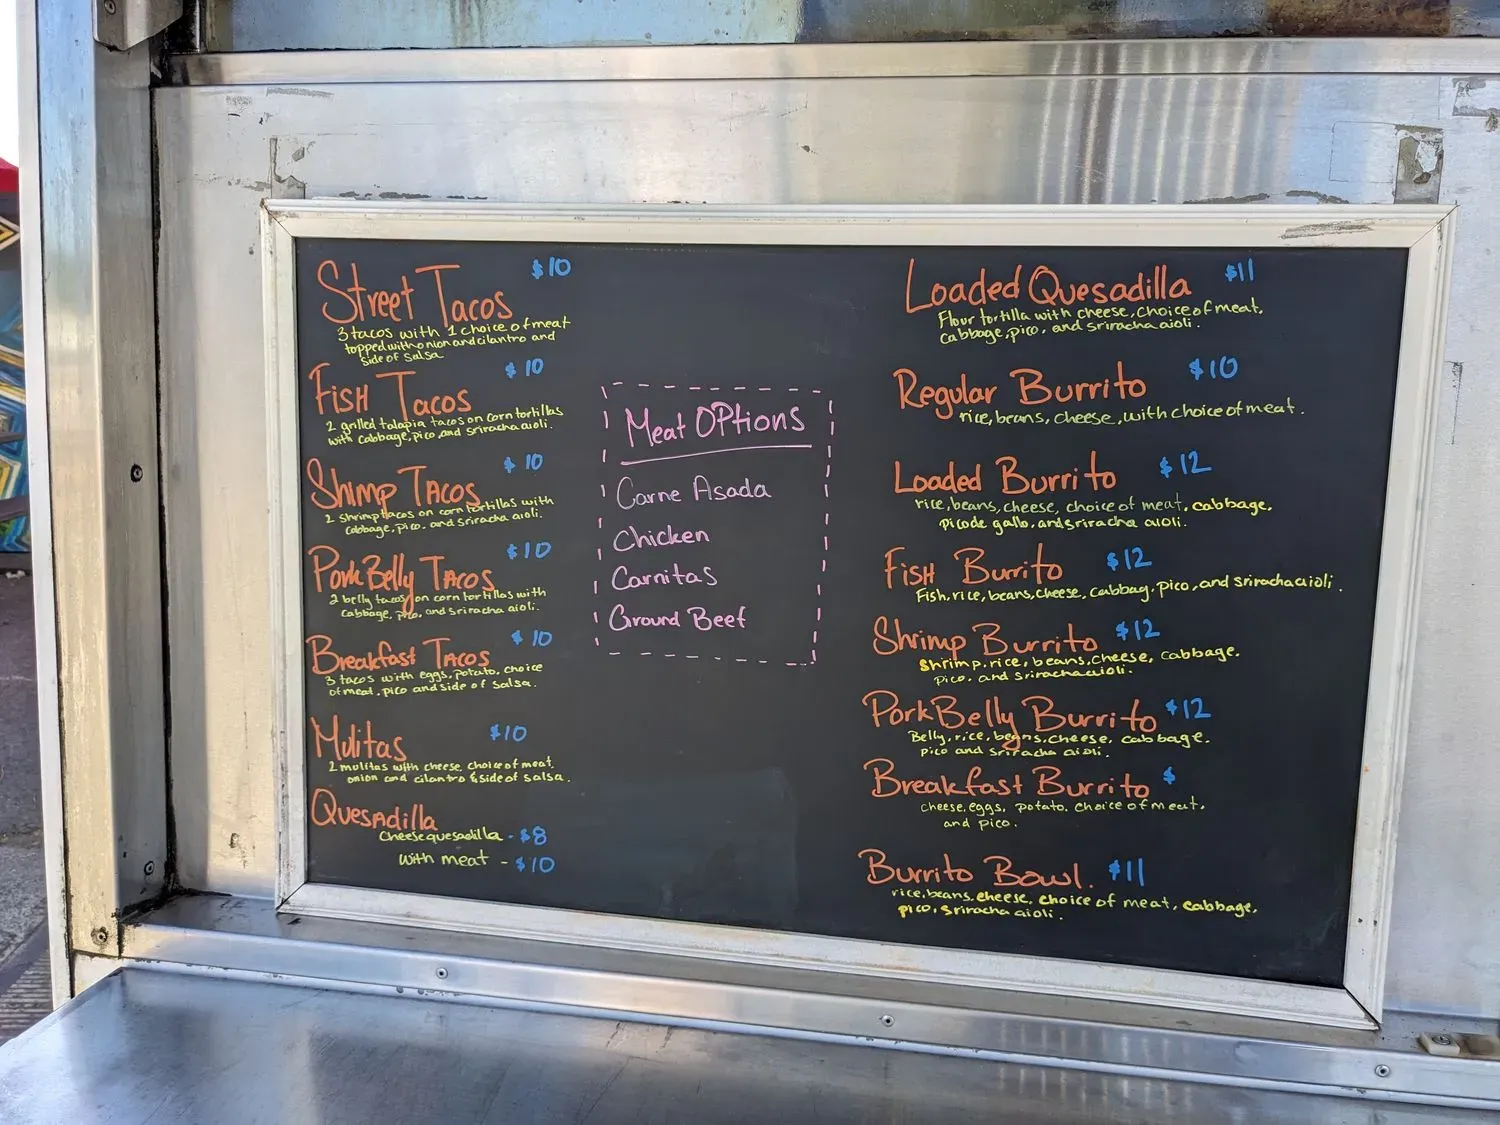 Street Tacos $10
3 tacos with 1 choice of meat
topped with onion and cilantro and
side of salsa
Fish Tacos $10
2 grilled talapia tacos on corn tortillas
with cabbage, pico, and sriracha aioli.
Shimp Tacos $10
2 shrimp tacos on corn tortillas with
cabbage, pico, and sriracha aioli.
Pork Belly Tacos $10
2 belly tacos on corn tortillas with
cabbage, pico, and sriracha aioli.
Breakfast Tacos $10
3 tacos with eggs, potato, choice
of meat, pico and side of salsa.
Mulitas $10
2 mulitas with cheese, choice of meat,
onion and cilantro & side of salsa.
Quesadilla
Cheese quesadilla - $8
with meat - $10
Meat Options
Carne Asada
Chicken
Carnitas
Ground Beef
Loaded Quesadilla $11
Flour tortilla with cheese, choice of meat,
cabbage, pico, and sriracha aioli.
Regular Burrito $10
rice, beans, cheese, with choice of meat.
Loaded Burrito $12
rice, beans, cheese, choice of meat, cabbage,
pico de gallo, and sriracha aioli.
Fish Burrito $12
Fish, rice, beans, cheese, cabbag, pico, and sriracha aioli.
Shrimp Burrito $12
Shrimp, rice, beans, cheese, cabbage,
pico, and sriracha aioli.
Pork Belly Burrito $12
Belly, rice, beans, cheese, cabbage,
pico and sriracha aioli.
Breakfast Burrito $
cheese, eggs, potato, choice of meat,
and pico.
Burrito Bowl. $11
rice, beans, cheese, choice of meat, cabbage,
pico, sriracha aioli.